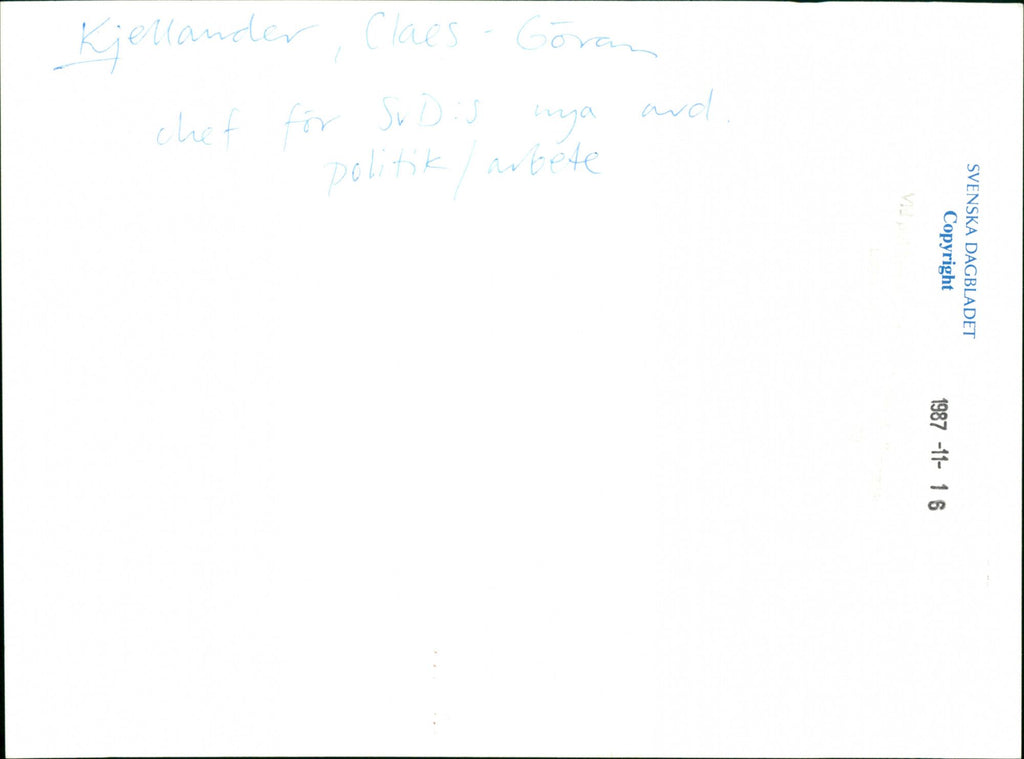 Kjellander, Claes-Göran
chef för SvD:s nya avd.
politik/arbete
SVENSKA DAGBLADET
Copyright
1987 -11- 16